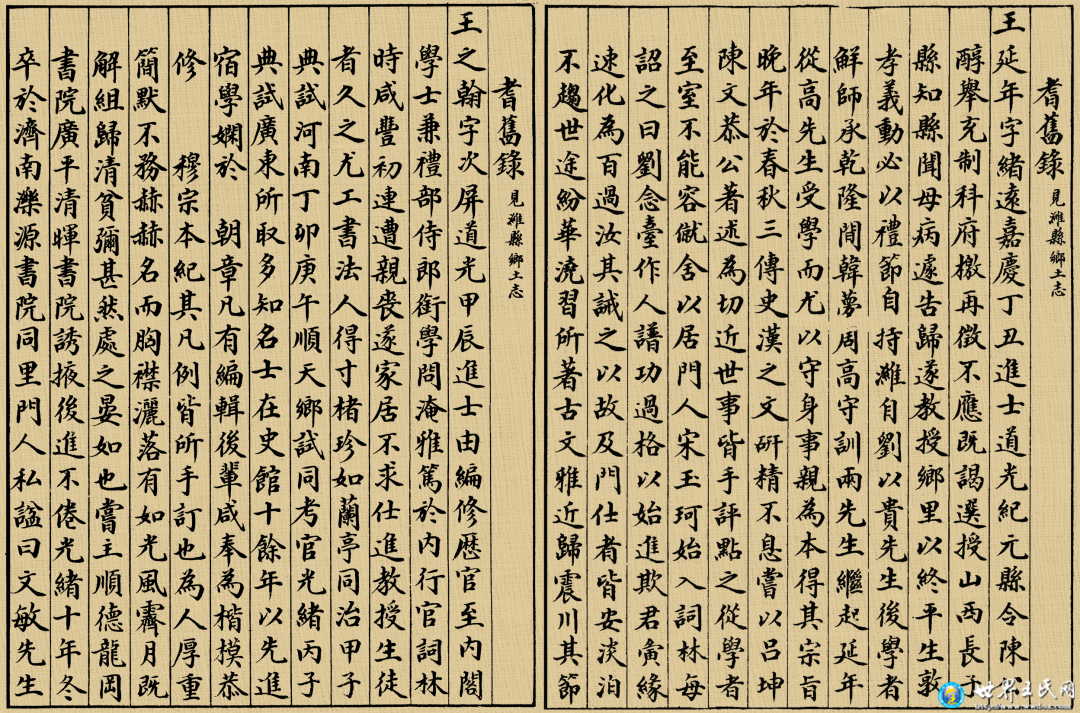 耆舊錄 見濰縣鄉土志
王延年字緒遠嘉慶丁丑進士道光紀元縣令陳
醇舉充制科府檄再徵不應既謁選授山西長子
縣知縣聞母病遽告歸遂教授鄉里以終平生敦
孝義動必以禮節自持濰自劉以貴先生後學者
鮮師承乾隆間韓夢周高守訓兩先生繼起延年
從高先生受學而尤以守身事親為本得其宗旨
晚年於春秋三傳史漢之文研精不息嘗以呂坤
陳文恭公著述為切近世事皆手評點之從學者
至室不能容僦舍以居門人宋玉珂始入詞林每
詔之曰劉念臺作人譜功過格以始進欺君夤緣
速化為百過汝其誡之以故及門仕者皆安淡泊
不趨世途紛華澆習所著古文雅近歸震川其節
耆舊錄 見濰縣鄉土志
王之翰字次屏道光甲辰進士由編修歷官至內閣
學士兼禮部侍郎銜學問淹雅篤於內行官詞林
時咸豐初連遭親喪遂家居不求仕進教授生徒
者久之尤工書法人得寸楮珍如蘭亭同治甲子
典試河南丁卯庚午順天鄉試同考官光緒丙子
典試廣東所取多知名士在史館十餘年以先進
宿學嫻於 朝章凡有編輯後輩咸奉為楷模恭
修 穆宗本紀其凡例皆所手訂也為人厚重
簡默不務赫赫名而胸襟灑落有如光風霽月既
解組歸清貧彌甚然處之晏如也嘗主順德龍岡
書院廣平清暉書院誘掖後進不倦光緒十年冬
卒於濟南濼源書院同里門人私諡曰文敏先生
世界王氏网